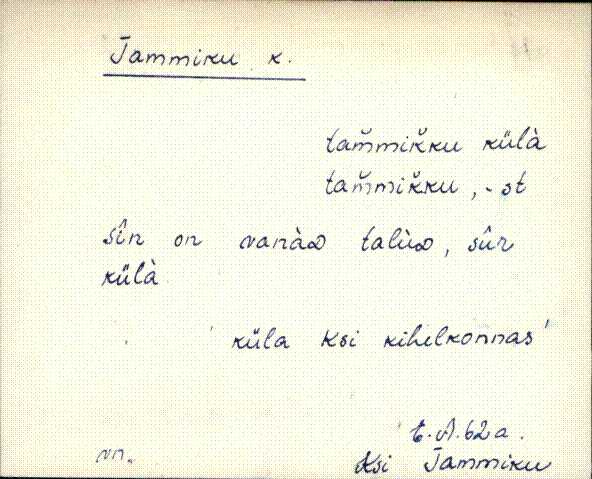 Tammiku k.
tam̆mik̆ku külà
tam̆mik̆ku, -st
sîn on vanàD talùD, sûr
külà
küla Ksi kihelkonnas
E.A. 62 a.
vn. Ksi Tammiku